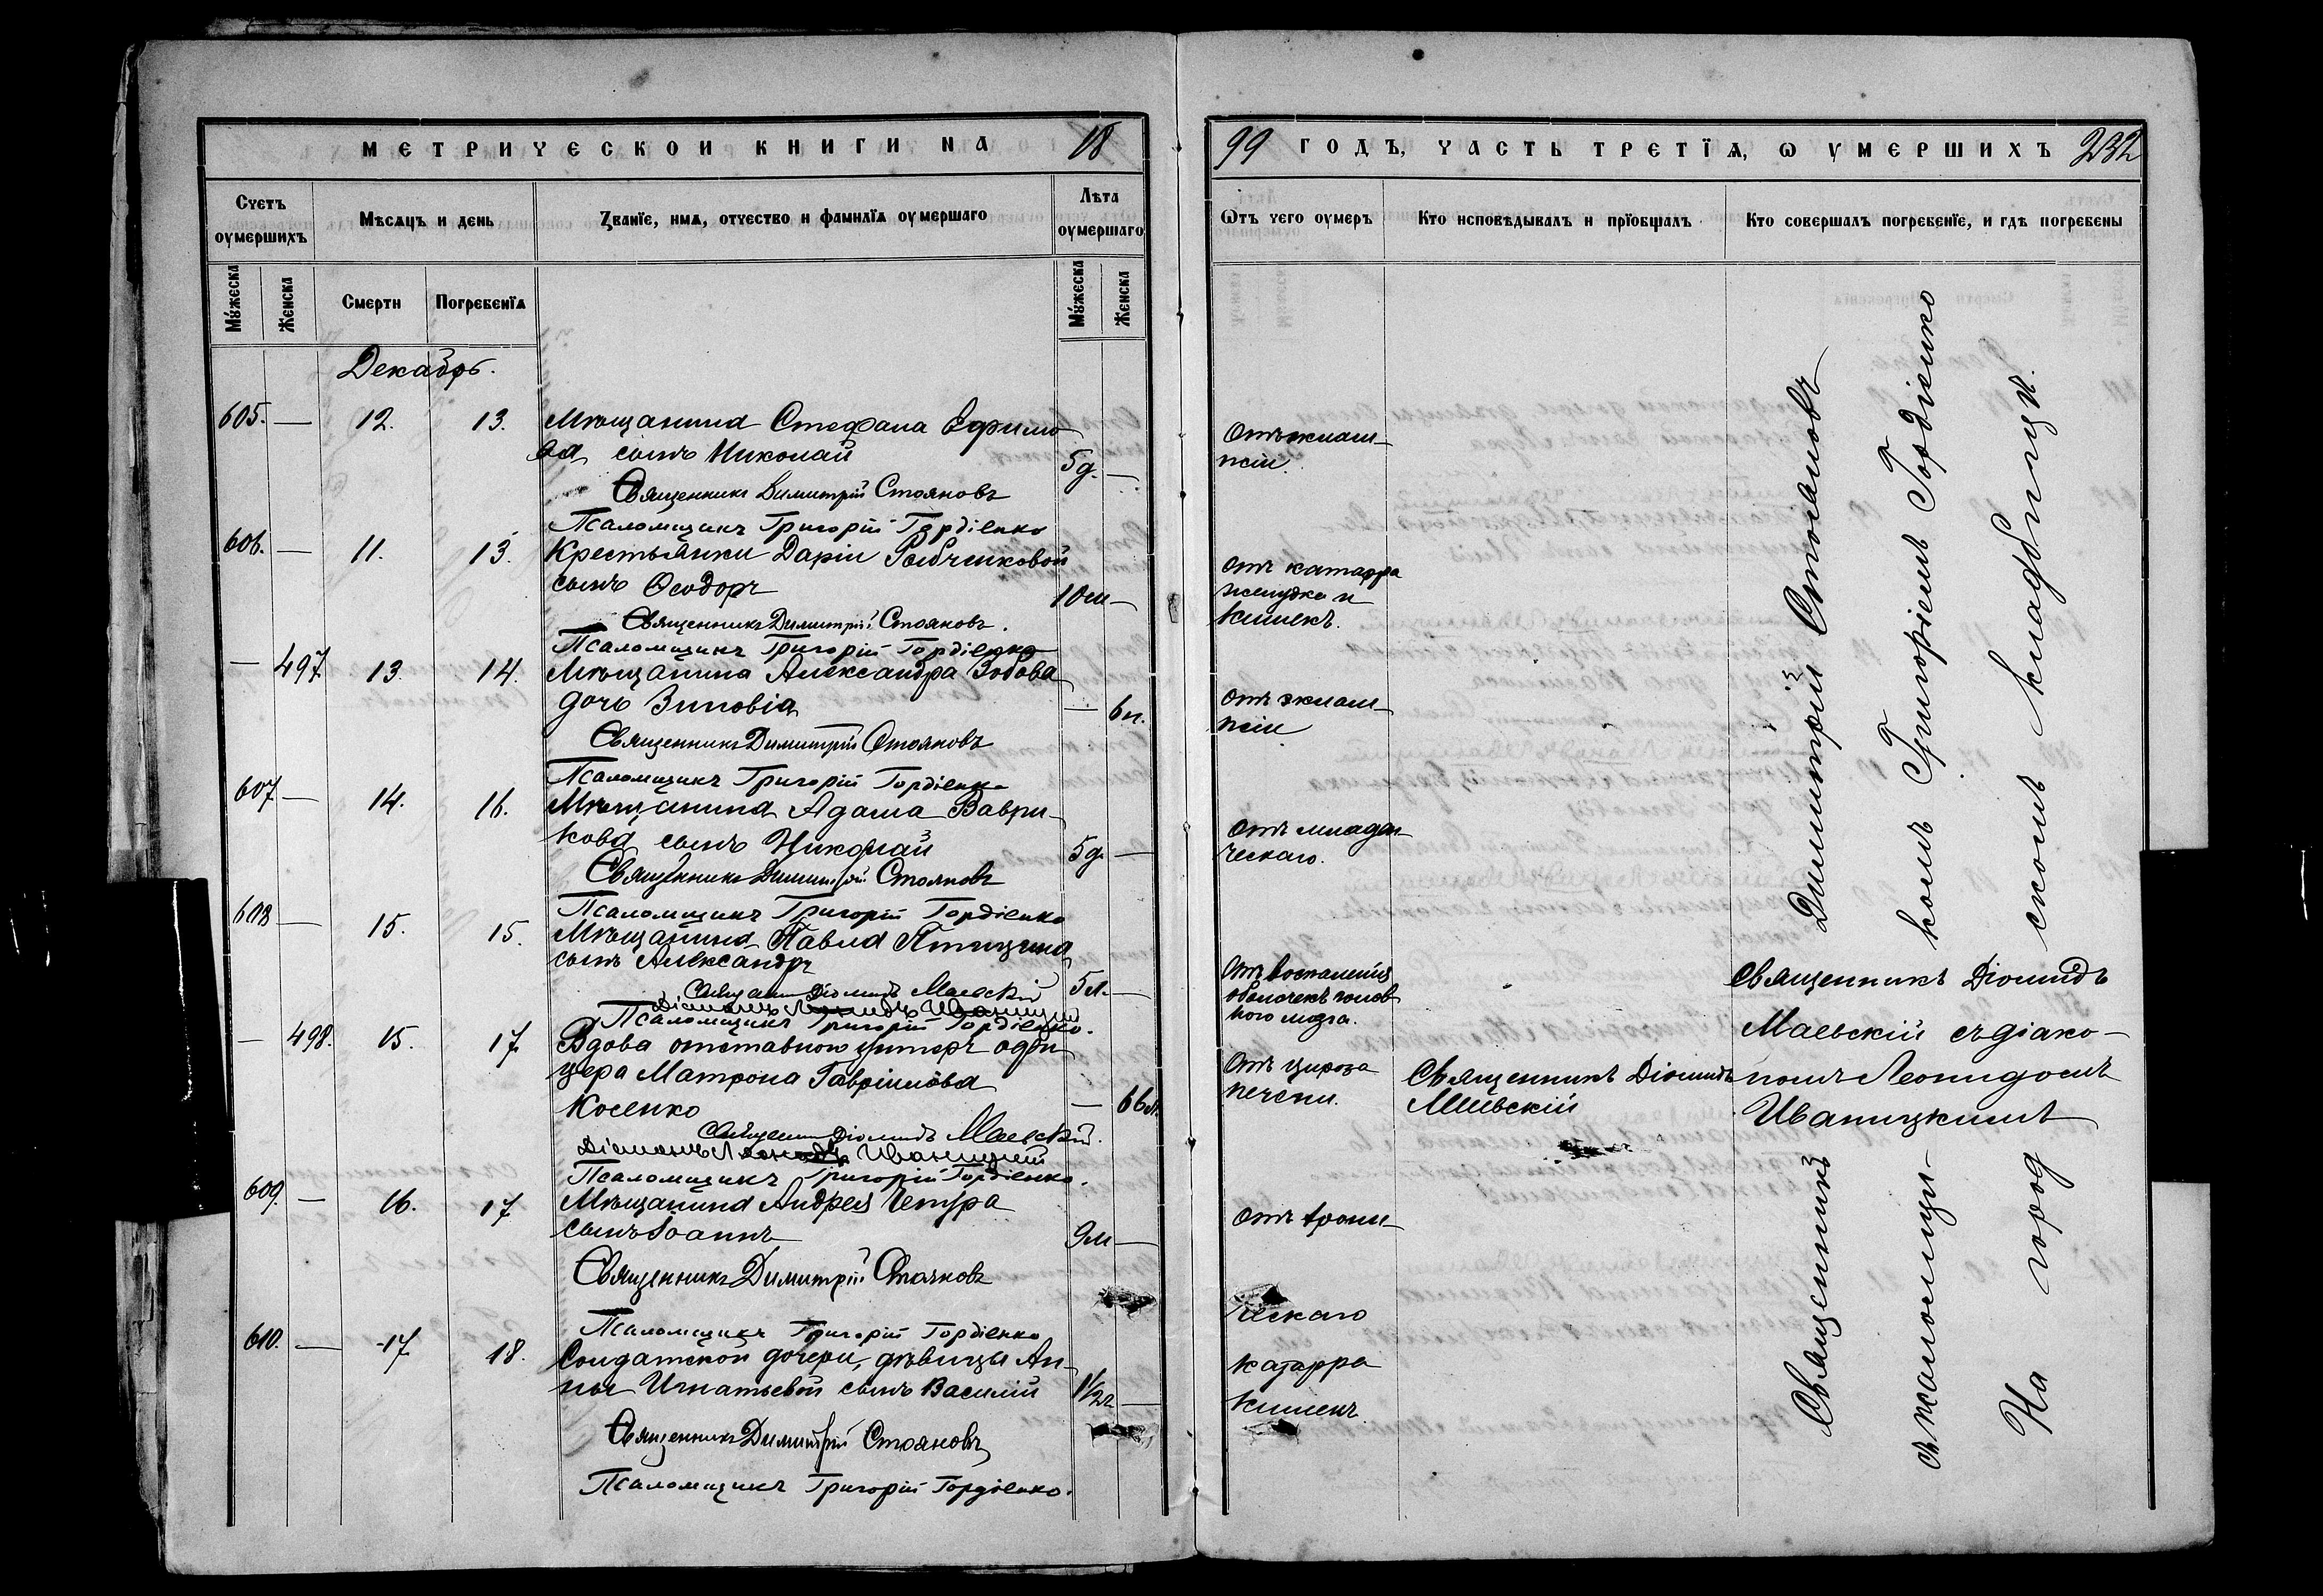 МЕТРИЧЕСКОЙ КНИГИ НА 18
Счетъ оумершихъ
Мѣсяцъ и день
Званіе, имя, отчество и фамилія оумершаго
Лѣта оумершаго
Мужеска
Женска
Смерти
Погребенія
Мужеска
Женска
Декабрь.
605. — 12. 13. Мѣщанина Стефана Ефимо
ва сынъ Николай 5д. —
Священникъ Димитрій Стояновъ
Псаломщикъ Григорій Гордіенко
606. — 11. 13. Крестьянки Даріи Рябченковой
сынъ Ѳеодоръ 10м —
Священникъ Димитрій Стояновъ.
Псаломщикъ Григорій Гордіенко
— 497. 13. 14. Мѣщанина Александра Зобова
дочь Зиновія — 6н.
Священникъ Димитрій Стояновъ
Псаломщикъ Григорій Гордіенко
607 — 14. 16. Мѣщанина Адама Ваври-
кова сынъ Николай 5д. —
Священникъ Димитрій Стояновъ
Псаломщикъ Григорій Гордіенко
608 — 15. 15. Мѣщанина Павла Птицина
сынъ Александръ 5л. —
Священ Діомидъ Маевскій
Діаконъ Леонидъ Иваницкій
Псаломщикъ Григорій Гордіенко.
— 498. 15. 17. Вдова отставного унтеръ офи
цера Матрона Гавріилова
Косенко — 66л.
Священ Діомидъ Маевскій.
Діаконъ Леонидъ Иваницкій
Псаломщикъ Григорій Гордіенко.
609. — 16. 17 Мѣщанина Андрея Чепура
сынъ Іоаннъ 9м —
Священникъ Димитрій Стояновъ
Псаломщикъ Григорій Гордіенко
610. — 17. 18. Солдатской дочери, дѣвицы Ан-
ны Игнатьевой сынъ Василій 1½г —
Священникъ Димитрій Стояновъ
Псаломщикъ Григорій Гордіенко.
99 ГОДЪ, ЧАСТЬ ТРЕТІЯ, Ѡ УМЕРШИХЪ 232
Ѡтъ чего оумеръ
Кто исповѣдывалъ и пріобщалъ
Кто совершалъ погребеніе, и гдѣ погребены
Отъ эклам-
псіи.
Отъ катарра
желудка и
кишекъ.
Отъ эклам-
псіи
Отъ младен
ческаго.
Отъ воспаленія
оболочекъ голов
ного мозга.
Отъ цироза
печени.
Священникъ Діомидъ
Маевскій
Отъ хрони-
ческаго
катарра
кишекъ.
Священникъ Димитрій Стояновъ
съ псаломщи-комъ Григоріемъ Гордіенко
На город скомъ кладбищѣ.
Священникъ Діомидъ
Маевскій съ діако-
номъ Леонидомъ
Иваницкимъ